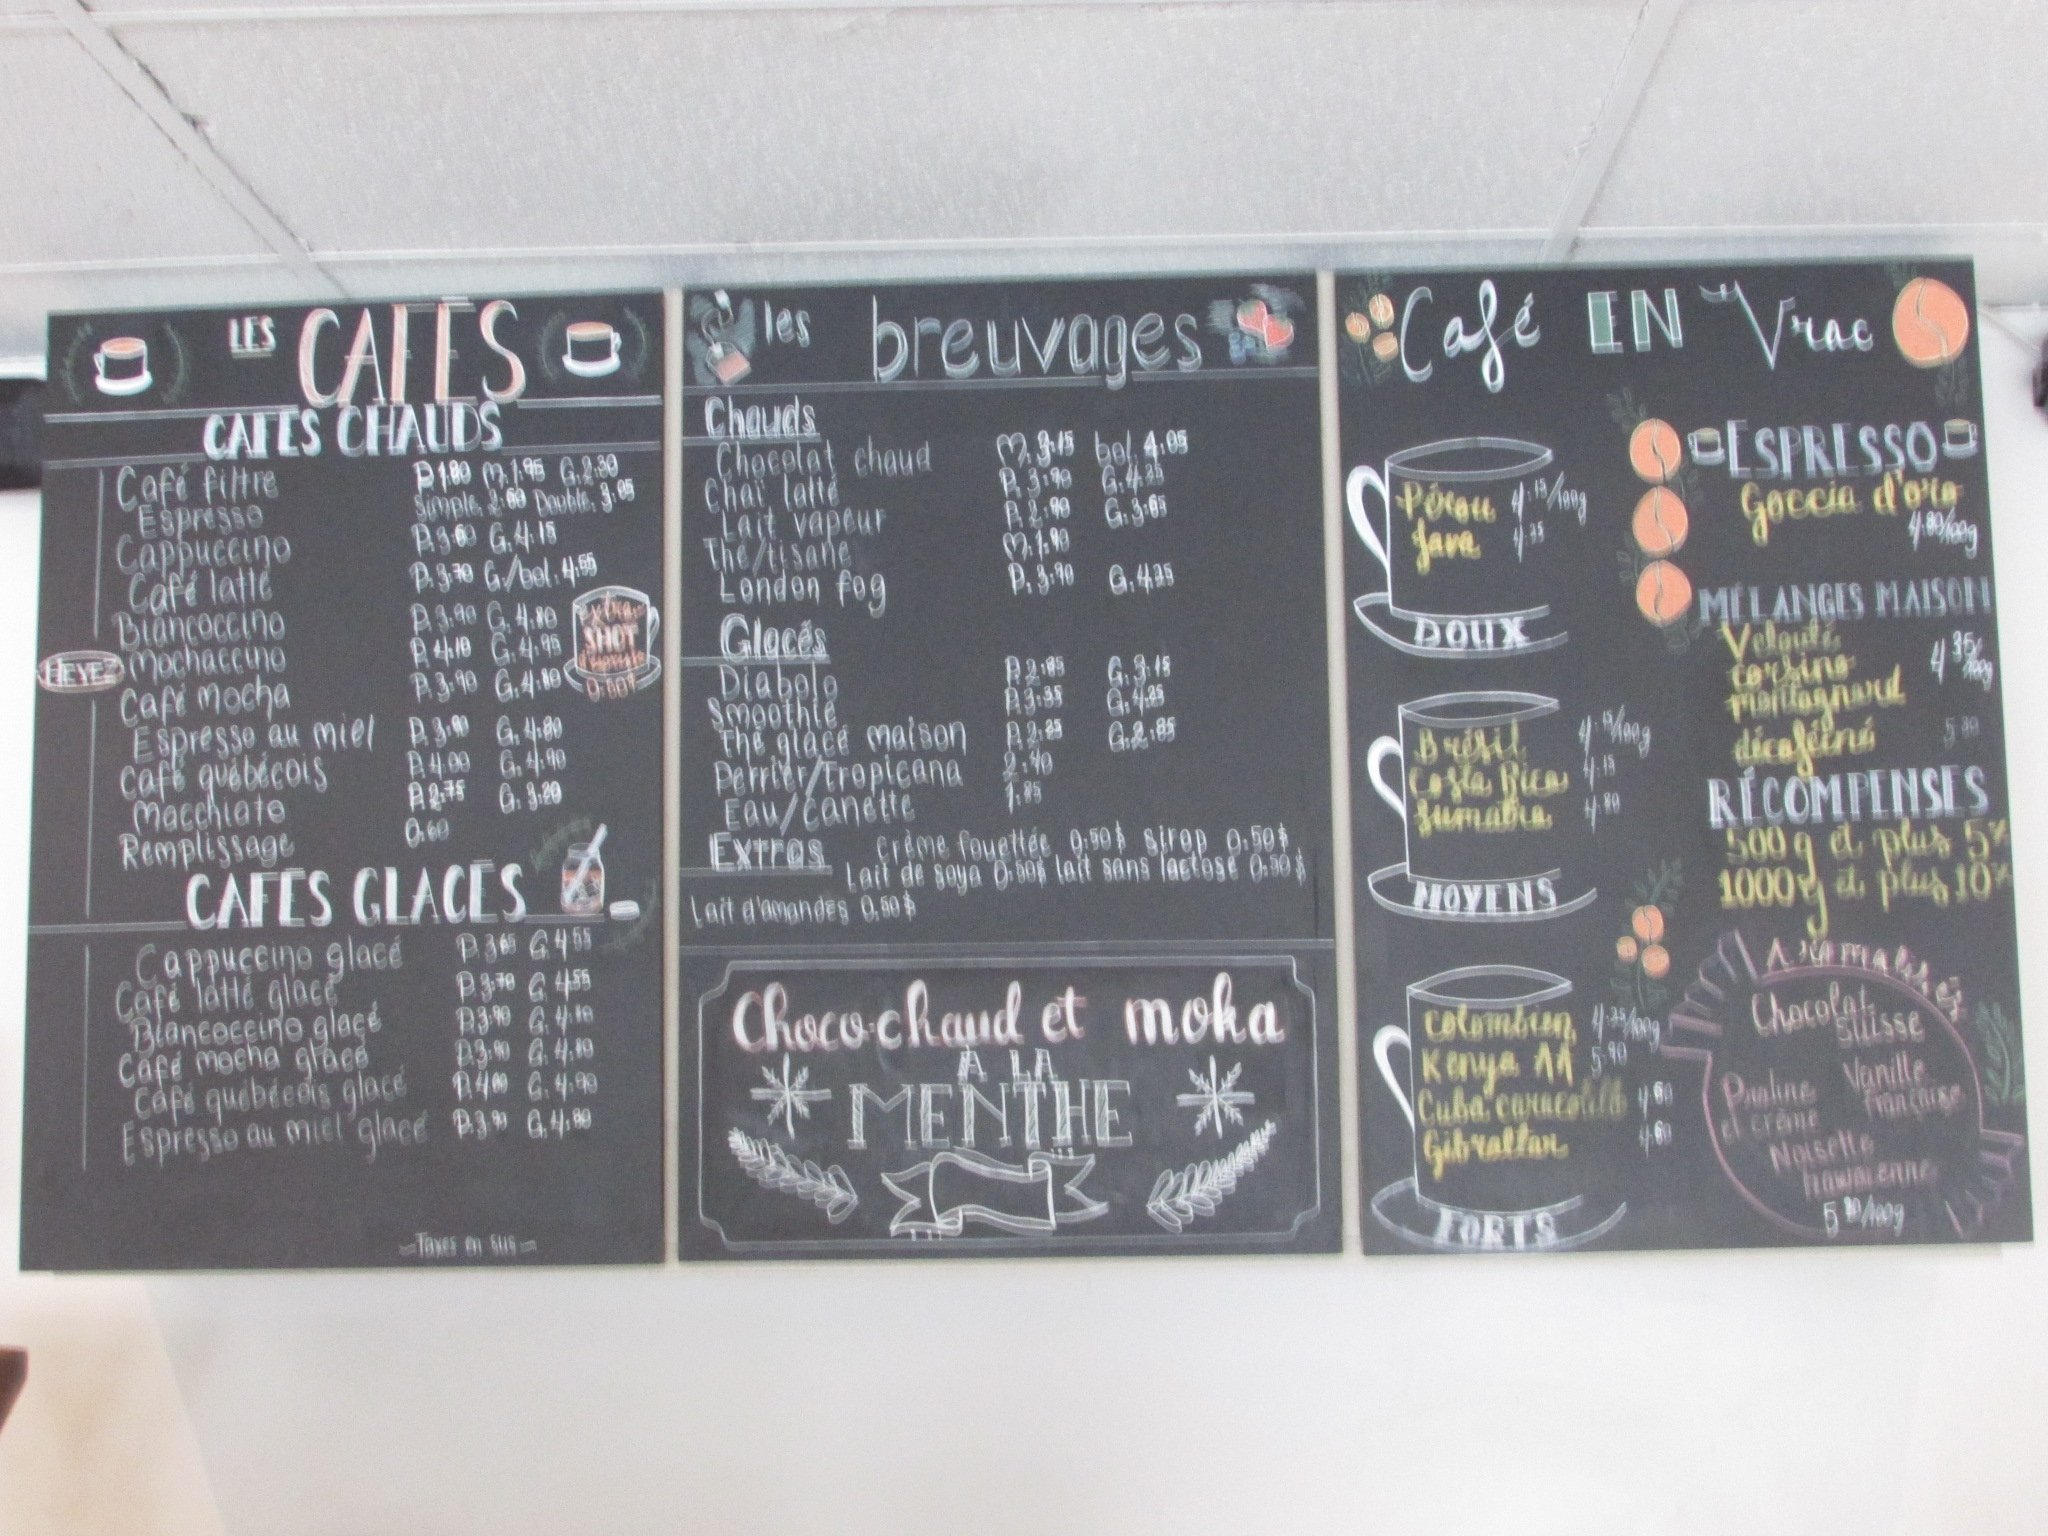 LES CAFÉS
CAFÉS CHAUDS
Café filtre P. 1.80 M. 1.95 G. 2.30
Espresso Simple. 2.60 Double. 3.05
Cappuccino P. 3.60 G. 4.15
Café latté P. 3.70 G./bol. 4.55
Biancoccino P. 3.90 G. 4.80
Mochaccino P. 4.10 G. 4.95
Café mocha P. 3.90 G. 4.80
Espresso au miel P. 3.90 G. 4.80
Café québécois P. 4.00 G. 4.90
Macchiato P. 2.75 G. 3.20
Remplissage 0.60
extra
SHOT
CAFÉS GLACÉS
Cappuccino glacé P. 3.65 G. 4.55
Café latté glacé P. 3.70 G. 4.55
Biancoccino glacé P. 3.90 G. 4.80
Café mocha glacé P. 3.90 G. 4.80
Café québécois glacé P. 4.00 G. 4.90
Espresso au miel glacé P. 3.90 G. 4.80
Taxes en sus
les breuvages
Chauds
Chocolat chaud M. 3.15 bol. 4.05
Chaï latté P. 3.90 G. 4.25
Lait vapeur P. 2.90 G. 3.65
Thé/tisane M. 1.90
London fog P. 3.90 G. 4.25
Glacés
Diabolo P. 2.85 G. 3.15
Smoothie P. 3.35 G. 4.25
Thé glacé maison P. 2.25 G. 2.85
Perrier/Tropicana 2.40
Eau/Canette 1.85
Extras Crème fouettée 0.50$ Sirop 0.50$
Lait de soya 0.50$ lait sans lactose 0.50$
Lait d'amandes 0.50$
Choco-chaud et moka
À LA
MENTHE
Café EN Vrac
Pérou 4.15/100g
Java 4.35
DOUX
Brésil 4.15/100g
Costa Rica 4.15
Sumatra 4.80
MOYENS
Colombien 4.35/100g
Kenya AA 5.90
Cuba caracolillo 4.60
Gibraltar 4.60
FORTS
ESPRESSO
Goccia d'oro
4.80/100g
MÉLANGES MAISON
Velouté
corsino 4.35/100g
montagnard
décaféiné
RÉCOMPENSES
500g et plus 5%
1000g et plus 10%
Aromatisés
Chocolat
Suisse
Vanille
Française
Praline
et crème
Noisette
hawaïenne
5.20/100g